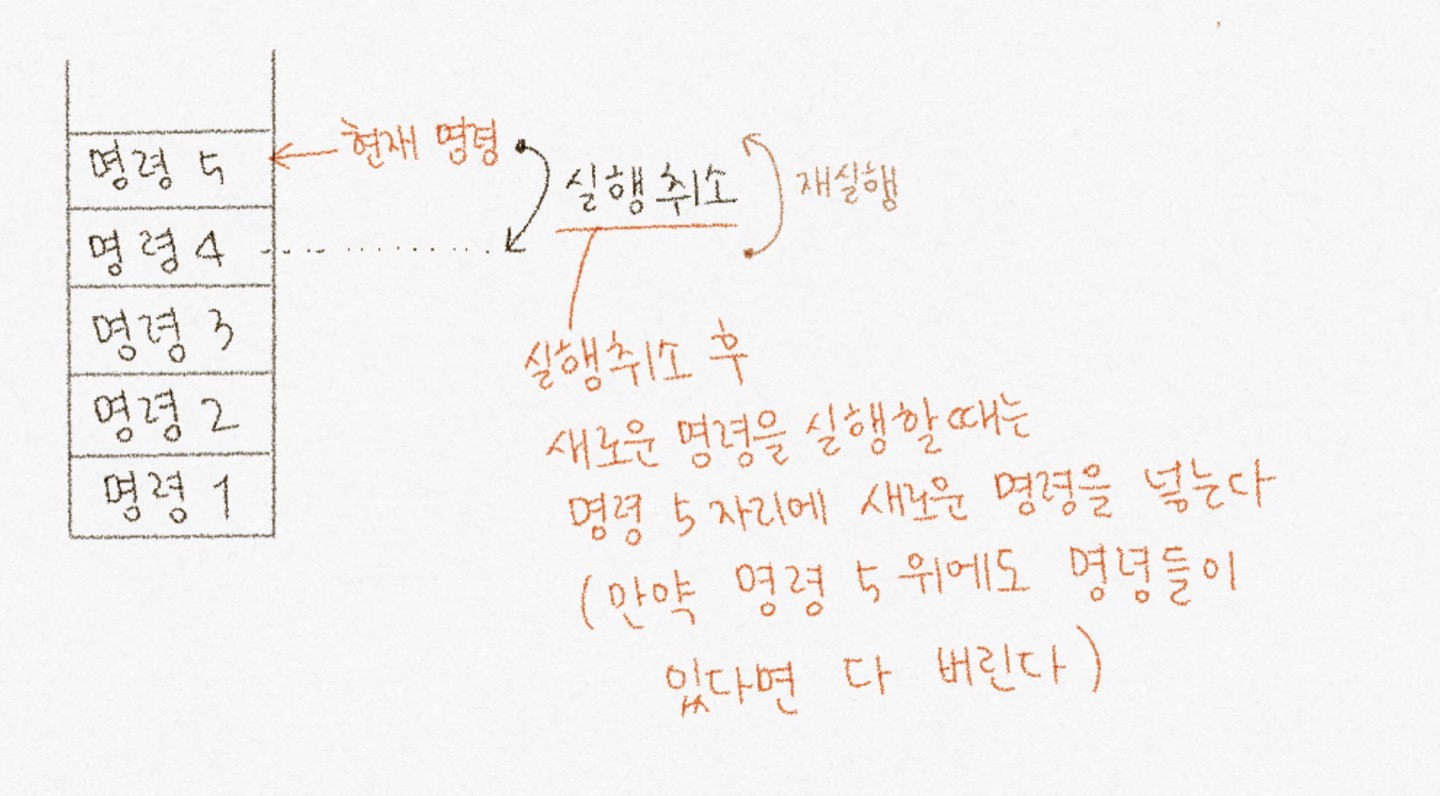 명령 5
현재 명령
실행취소
재실행
명령 4
명령 3
명령 2
명령 1
실행취소 후
새로운 명령을 실행할 때는
명령 5 자리에 새로운 명령을 넣는다
(만약 명령 5 위에도 명령들이
있다면 다 버린다)